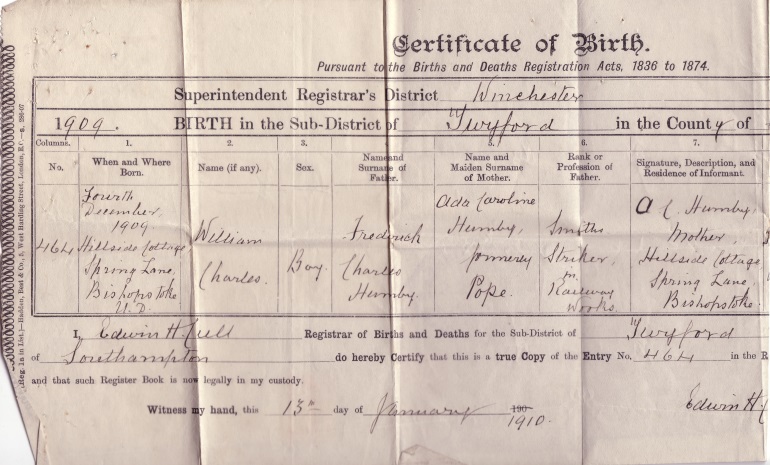 Certificate of Birth.
Pursuant to the Births and Deaths Registration Acts, 1836 to 1874.
Superintendent Registrar's District Winchester
1909. BIRTH in the Sub-District of Twyford in the County of
Columns. 1. 2. 3. 4. 5. 6. 7.
No. When and Where Born. Name (if any). Sex. Name and Surname of Father. Name and Maiden Surname of Mother. Rank or Profession of Father. Signature, Description, and Residence of Informant.
464
Fourth
December
1909
Hillside Cottage
Spring Lane
Bishopstoke
U.D.
William
Charles.
Boy.
Frederick
Charles
Humby.
Ada Caroline
Humby,
formerly
Pope.
Smiths
Striker,
in
Railway
Works.
A C Humby,
Mother,
Hillside Cottage
Spring Lane,
Bishopstoke.
I, Edwin H Cull Registrar of Births and Deaths for the Sub-District of Twyford
of Southampton do hereby Certify that this is a true Copy of the Entry No. 464 in the R
and that such Register Book is now legally in my custody.
Witness my hand, this 13th day of January 190
1910.
Edwin H C
Reg. 1A in List.]—Haddon, Best & Co., 5, West Harding Street, London, E.C.